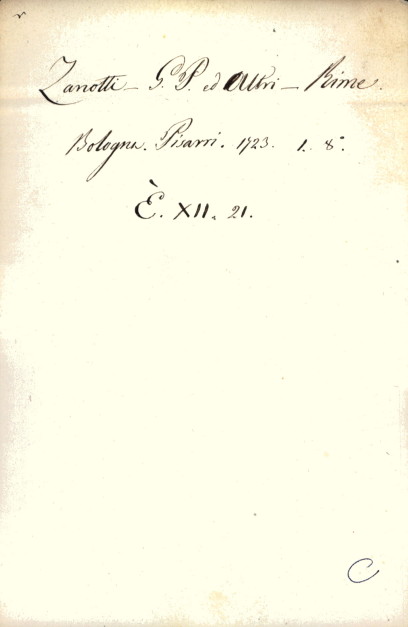 Zanotti - G. P. ed Altri - Rime.
Bologna. Pisarri. 1723. 1. 8°.
È. XII. 21.
C